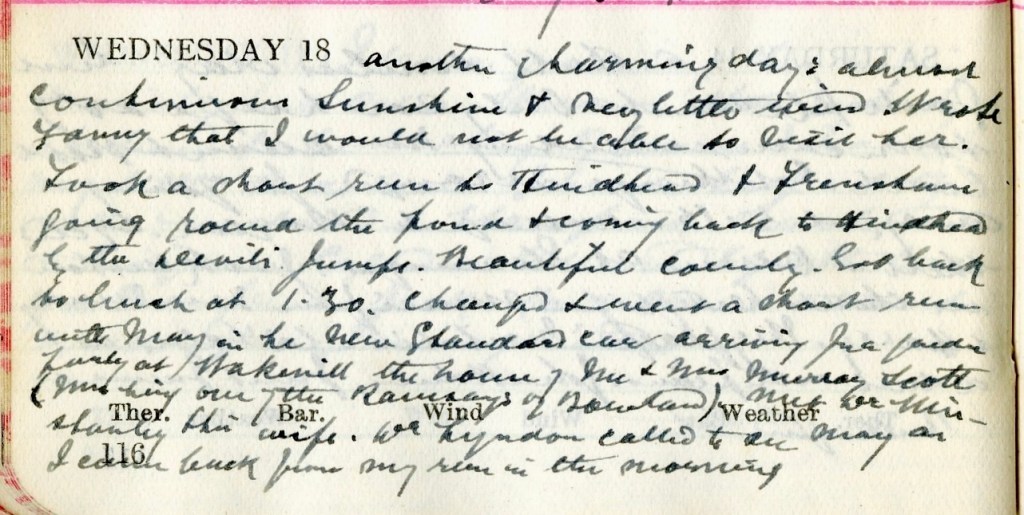 WEDNESDAY 18 another charming day: almost
continuous Sunshine & very little wind. Wrote
Fanny that I would not be able to visit her.
Took a short run to Hindhead & Frensham
going round the pond & coming back to Hindhead
by the Devil's Jumps. Beautiful county. Got back
to lunch at 1.30. Changed & went a short run
with May in he new Standard car arriving for a garden
party at Wakenill the house of Mr & Mrs Murray Scott
(Mrs being one of the Ramsays of Bowland) Met Dr
Ther. Bar. Wind Weather
wife. Dr Lyndon called to see May as
116
I came back from my run in the morning